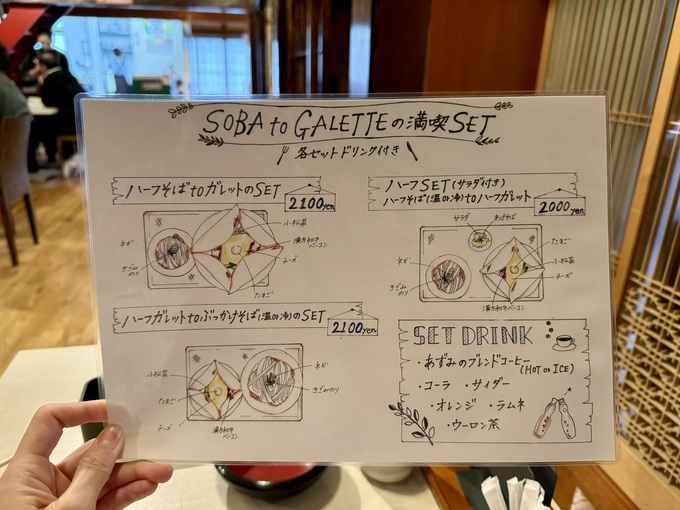 SOBA to GALETTEの満喫SET
各セットドリンク付き
ハーフそばtoガレットのSET
2100yen
小松菜
漢方和牛
ベーコン
チーズ
たまご
ネギ
きざみ
のり
ハーフSET(サラダ付き)
ハーフそば(温or冷)toハーフガレット
2000yen
サラダ
あげそば
たまご
小松菜
チーズ
漢方和牛ベーコン
ネギ
きざみ
のり
ハーフガレットtoぶっかけそば(温or冷)のSET
2100yen
小松菜
たまご
チーズ
漢方和牛
ベーコン
ネギ
きざみのり
SET DRINK
・あずみのブレンドコーヒー
(HOT or ICE)
・コーラ ・サイダー
・オレンジ ・ラムネ
・ウーロン茶